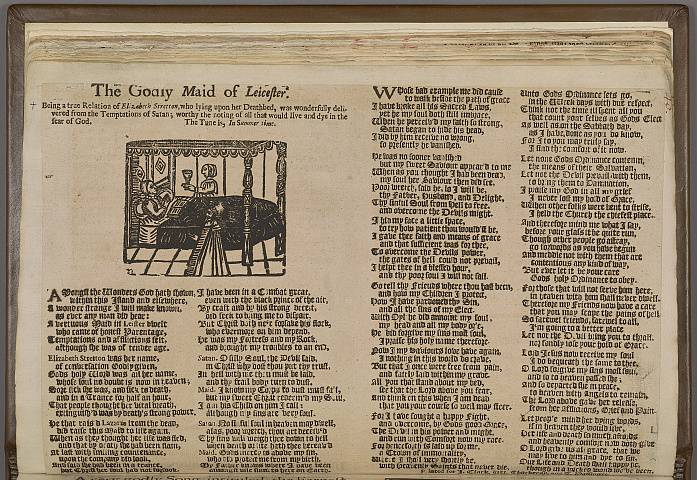 The Godly Maid of Leicester.
Being a true Relation of Elizabeth Stretton, who lying upon her Deathbed, was wonderfully deli-
vered from the Temptations of Satan; worthy the noting of all that would live and dye in the
fear of God. The Tune is, In Summer time.
AMongst the Wonders God hath shown,
within this Island and elsewhere,
A wondrous strange I will make known,
as ever any man did hear.
A vertuous Maid in Leicester dwelt
who came of honest Parentage,
Temptations and afflictions felt,
although she was of tender age.
Elizabeth Stretton was her name,
of conversation Godly given,
Gods holy Word was all her aim,
whose soul no doubt is now in heaven;
Sore sick she was, and like to death
and in a Trance for half an hour;
That people thought her vital breath,
extinguisht was by death's strong power.
He that rais'd Lazarus from the dead,
did raise this Maid to life again,
When as they thought her life was fled,
and that by death she had been slain,
At last with smiling countenance,
upon the company she look,
And said she had been in a trance,
but Christ her soul had not forsook.
I have been in a Combat great,
even with the black prince of the air,
By craft and by his strong deceit,
did seek to bring me to despair.
But Christ doth ne'r forsake his flock,
who evermore on him depend,
He was my Fortress and my Rock,
and brought my troubles to an end.
Satan. O silly Soul, the Devil said,
in Christ why dost thou put thy trust,
In hell with me thou must be laid,
and thy frail body turn to dust.
Maid. I know my Corps to dust must fall,
but my sweet Christ redeem'd my Soul,
I am his Child on him I call
although my sins are very foul.
Satan. No sinful soul in heaven may dwell,
as, poor wretch, thou art deceiv'd
Thy sins will weigh thee down to hell
when death at last hath thee bereav'd
Maid. Gods mercy is above my sin,
who will protect me from my birth,
My Father knows where I have been
WHose bad example me did cause
to walk beside the path of grace
I have broke all his Sacred Laws,
yet he my soul doth still embrace,
When he perceiv'd my faith so strong,
Satan began to hide his head,
I bid him here receive no wrong,
so presently he vanished.
He was no sooner vanish'd
but my sweet Saviour appear'd to me
When as you thought I had been dead,
my soul her Saviour then did see.
Poor wretch, said he, lo I will be,
thy Father, Husband, and Delight,
Thy sinful Soul from hell to free,
and overcome the Devils might.
I hid my face a little space,
to try how patient thou would'st be,
I gave thee faith and means of grace
and that sufficient was for thee,
To overcome the Devils power,
the gates of hell could not prevail,
I helpt thee in a blessed hour,
and thy poor soul I will not fail.
Go tell thy Friends where thou hast been,
and how my Children I protect,
How I have pardoned thy Sin,
and all the sins of my Elect.
With Eye he did annoint my soul,
my head and all my body o're,
He did forgive my sins most foul,
I praise his holy name therefore.
Now I my wonted love have again,
I nothing in this world do crave,
But that I once were free from pain,
and safely laid within my grave.
All you that stand about my bed,
see that the Lord above you fear,
And think on this when I am dead
that you your course so well may steer.
For I have fought a happy Fight,
and overcome, by Gods good Grace,
The Devil in his power and might,
and run with Comfort now my race.
For henceforth is laid up for me
a Crown of immortality,
Where I shall very shortly be,
with heavenly Saints that never die.
Unto Gods Ordinance lets go,
in the Week days with due respect,
Think not the time ill spent all you
that count your selves as Gods Elect
As well as on the Sabbath day,
as I have done as you do know,
For I to you may truly say,
I find the comfort of it now.
Let none Gods Ordinance contemn,
the means of their Salvation,
Let not the Devil prevail with them,
to bring them to Damnation.
I praise my God in all my grief
I never lost my hold of Grace,
When other folks were bent to strife,
I held the Church the chiefest place.
And therefore mind me what I say,
before your glass it be quite run,
Though other people go astray,
go forwards as you have begun
And meddle not with them that are
contentious any kind of way,
But ever let it be your care
Gods holy Ordinance to obey.
For those that will not serve him here,
in heaven with him shall never dwell,
Therefore my Friends now have a care
that you may scape the pains of hell
So farewel friends, farewel to all,
I'm going to a better place
Let not the Devil bring you to thrall,
nor finally lose your hold of Grace.
Lord Jesus now receive my soul
I do bequeath the same to thee,
O Lord forgive my sins most foul,
and so departed she in peace,
in heaven with Angels to remain
The Lord above gave her release,
from her afflictions, Grief and Pain.
Let people mind her dying words,
if in heaven they would live,
Her life and death so much affords
and heavenly comfort now doth give
O Lord give us all grace, that we
may live to dye and dye to sin,
Our Life and Death shall happy be,